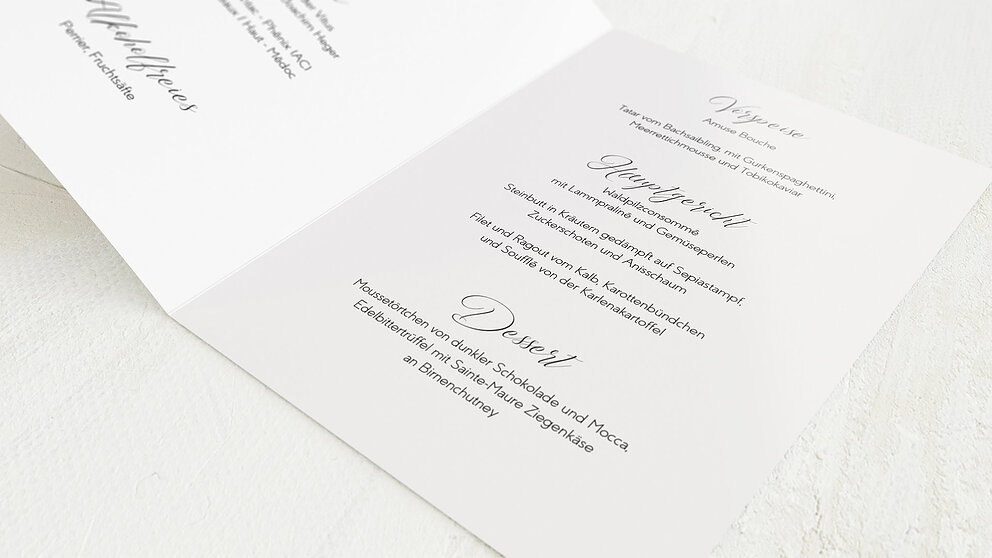 Vitus
Joachim Heger
Phénix (AC)
Haut - Médoc
Alkoholfreies
Perrier, Fruchtsäfte
Vorspeise
Amuse Bouche
Tatar vom Bachsaibling, mit Gurkenspaghettini,
Meerrettichmousse und Tobikokaviar
Hauptgericht
Waldpilzconsommé
mit Lammpraliné und Gemüseperlen
Steinbutt in Kräutern gedämpft auf Sepiastampf,
Zuckerschoten und Anisschaum
Filet und Ragout vom Kalb, Karottenbündchen
und Soufflé von der Karlenakartoffel
Dessert
Moussetörtchen von dunkler Schokolade und Mocca,
Edelbittertrüffel mit Sainte-Maure Ziegenkäse
an Birnenchutney